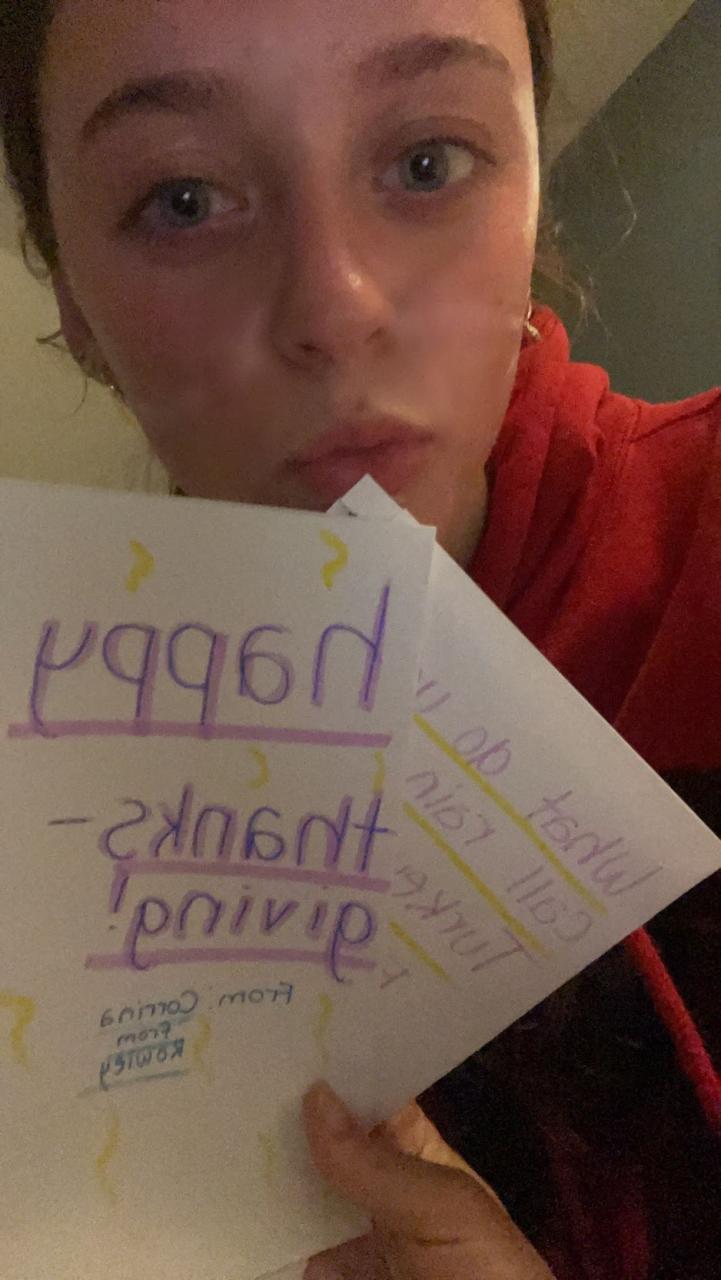 happy
thanks-
giving!
From: Corrina
From
Rowley
What do u
call rain
Turke